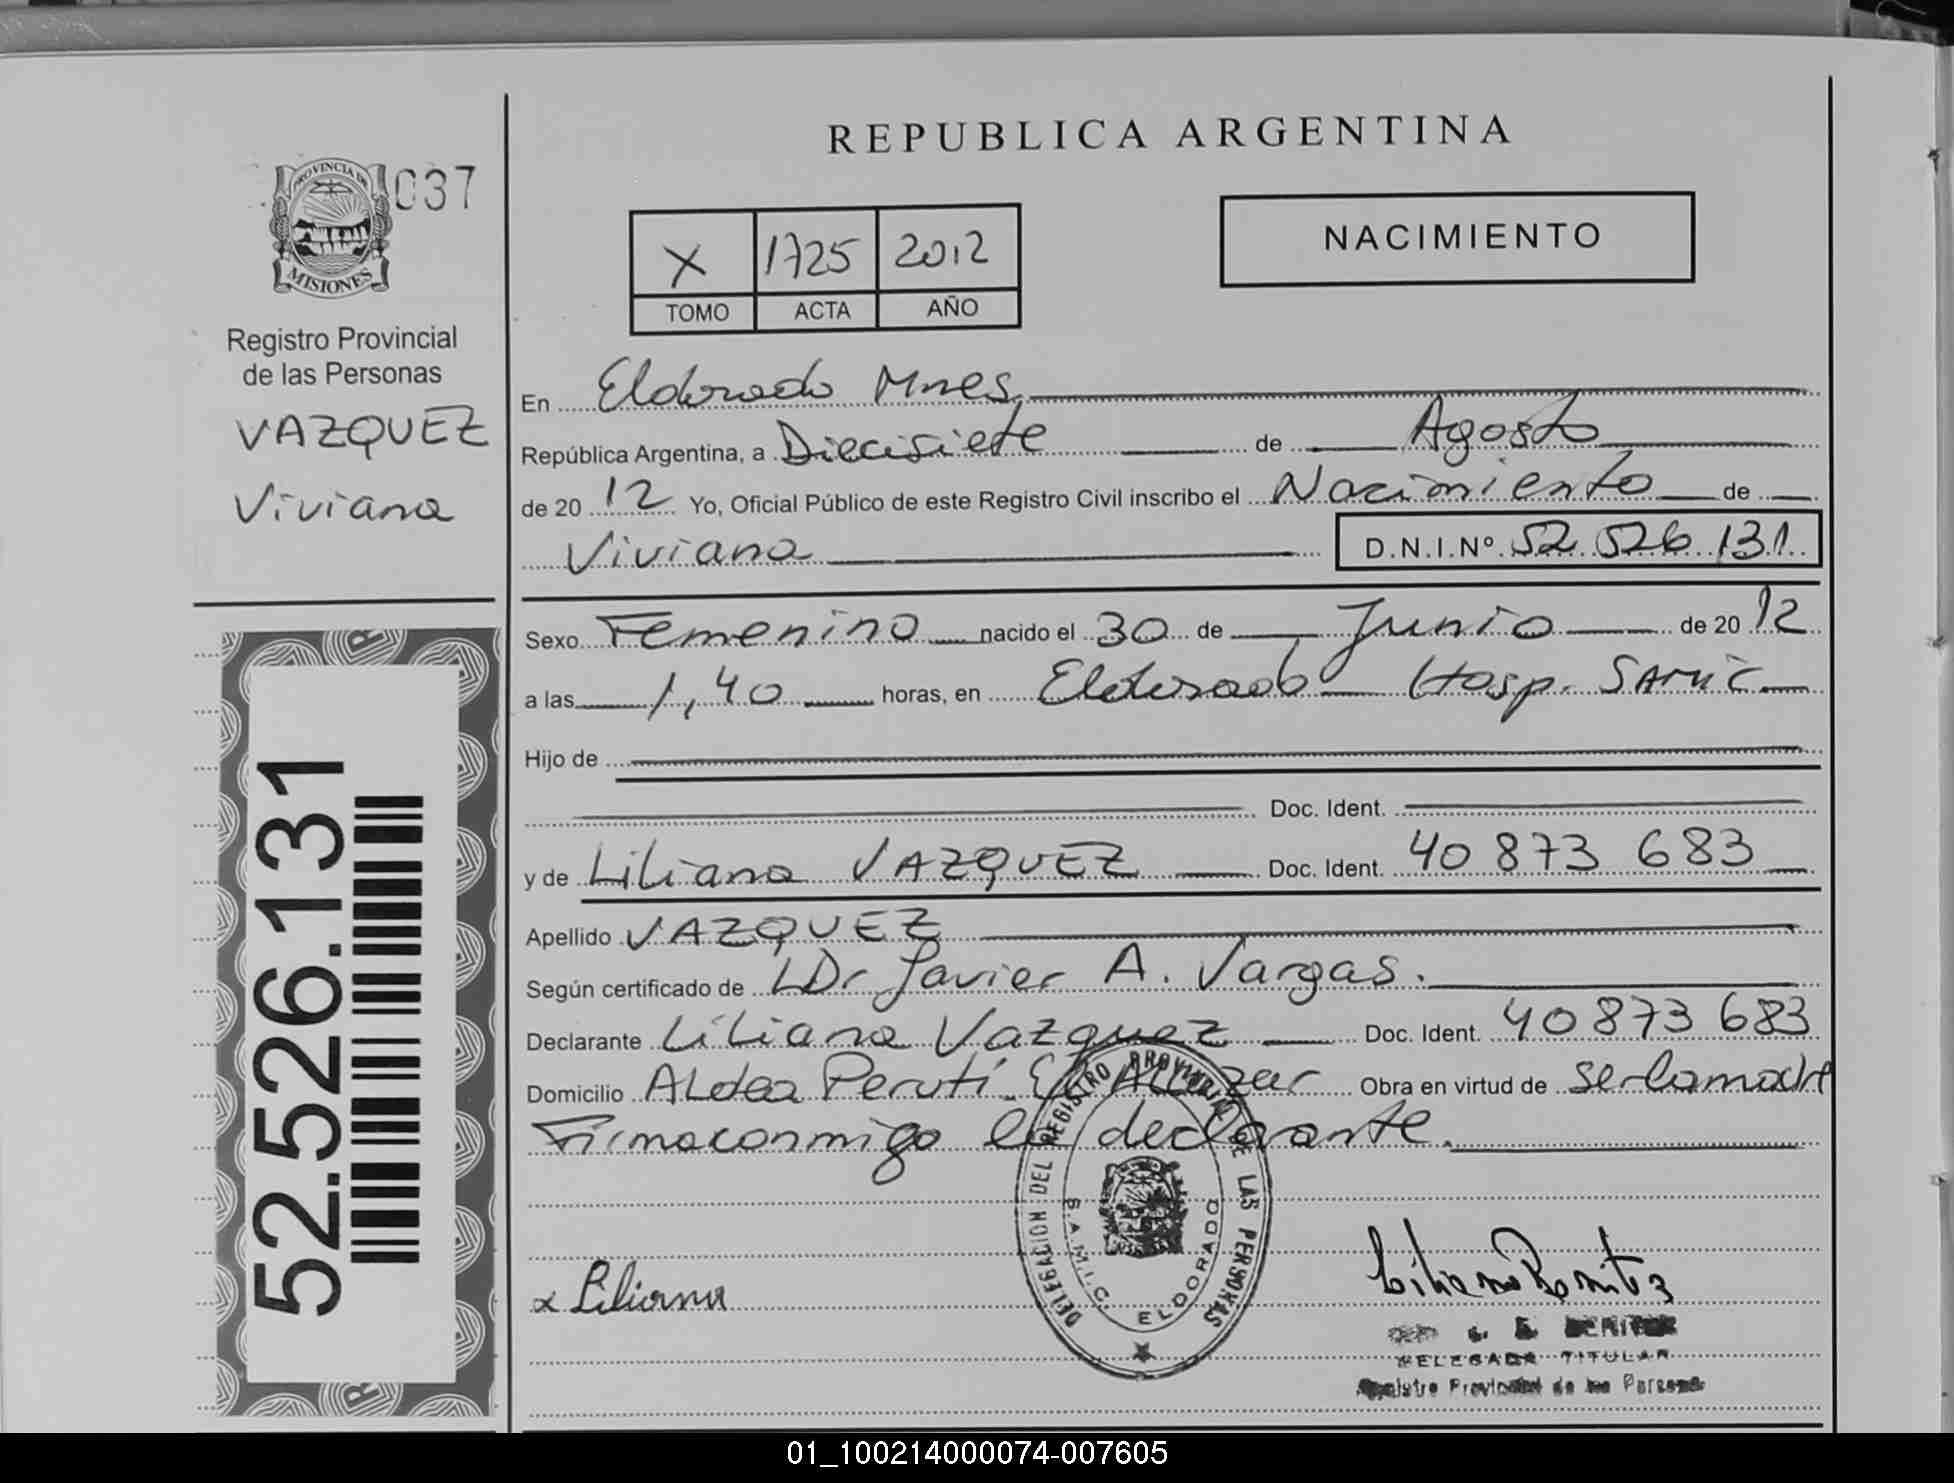 PROVINCIA DE
MISIONES
037
Registro Provincial
de las Personas
VAZQUEZ
Viviana
52.526.131
REPUBLICA ARGENTINA
NACIMIENTO
X 1725 2012
TOMO ACTA AÑO
En Eldorado Mnes.
República Argentina, a Diecisiete de Agosto
de 20 12 Yo, Oficial Público de este Registro Civil inscribo el Nacimiento de
Viviana D.N.I.Nº 52 526 131
Sexo Femenino nacido el 30 de Junio de 20 12
a las 1,40 horas, en Eldorado Hosp. SAMIC
Hijo de
Doc. Ident.
y de Liliana VAZQUEZ Doc. Ident. 40 873 683
Apellido VAZQUEZ
Según certificado de Dr Javier A. Vargas.
Declarante Liliana Vazquez Doc. Ident. 40 873 683
Domicilio Aldea Peruti. El Alcazar Obra en virtud de ser la madre
Firma conmigo la declarante.
DELEGACION DEL REGISTRO PROVINCIAL DE LAS PERSONAS
S.A.M.I.C. ELDORADO
x Liliana
BENITEZ
DELEGADA TITULAR
Registro Provincial de las Personas
01_100214000074-007605